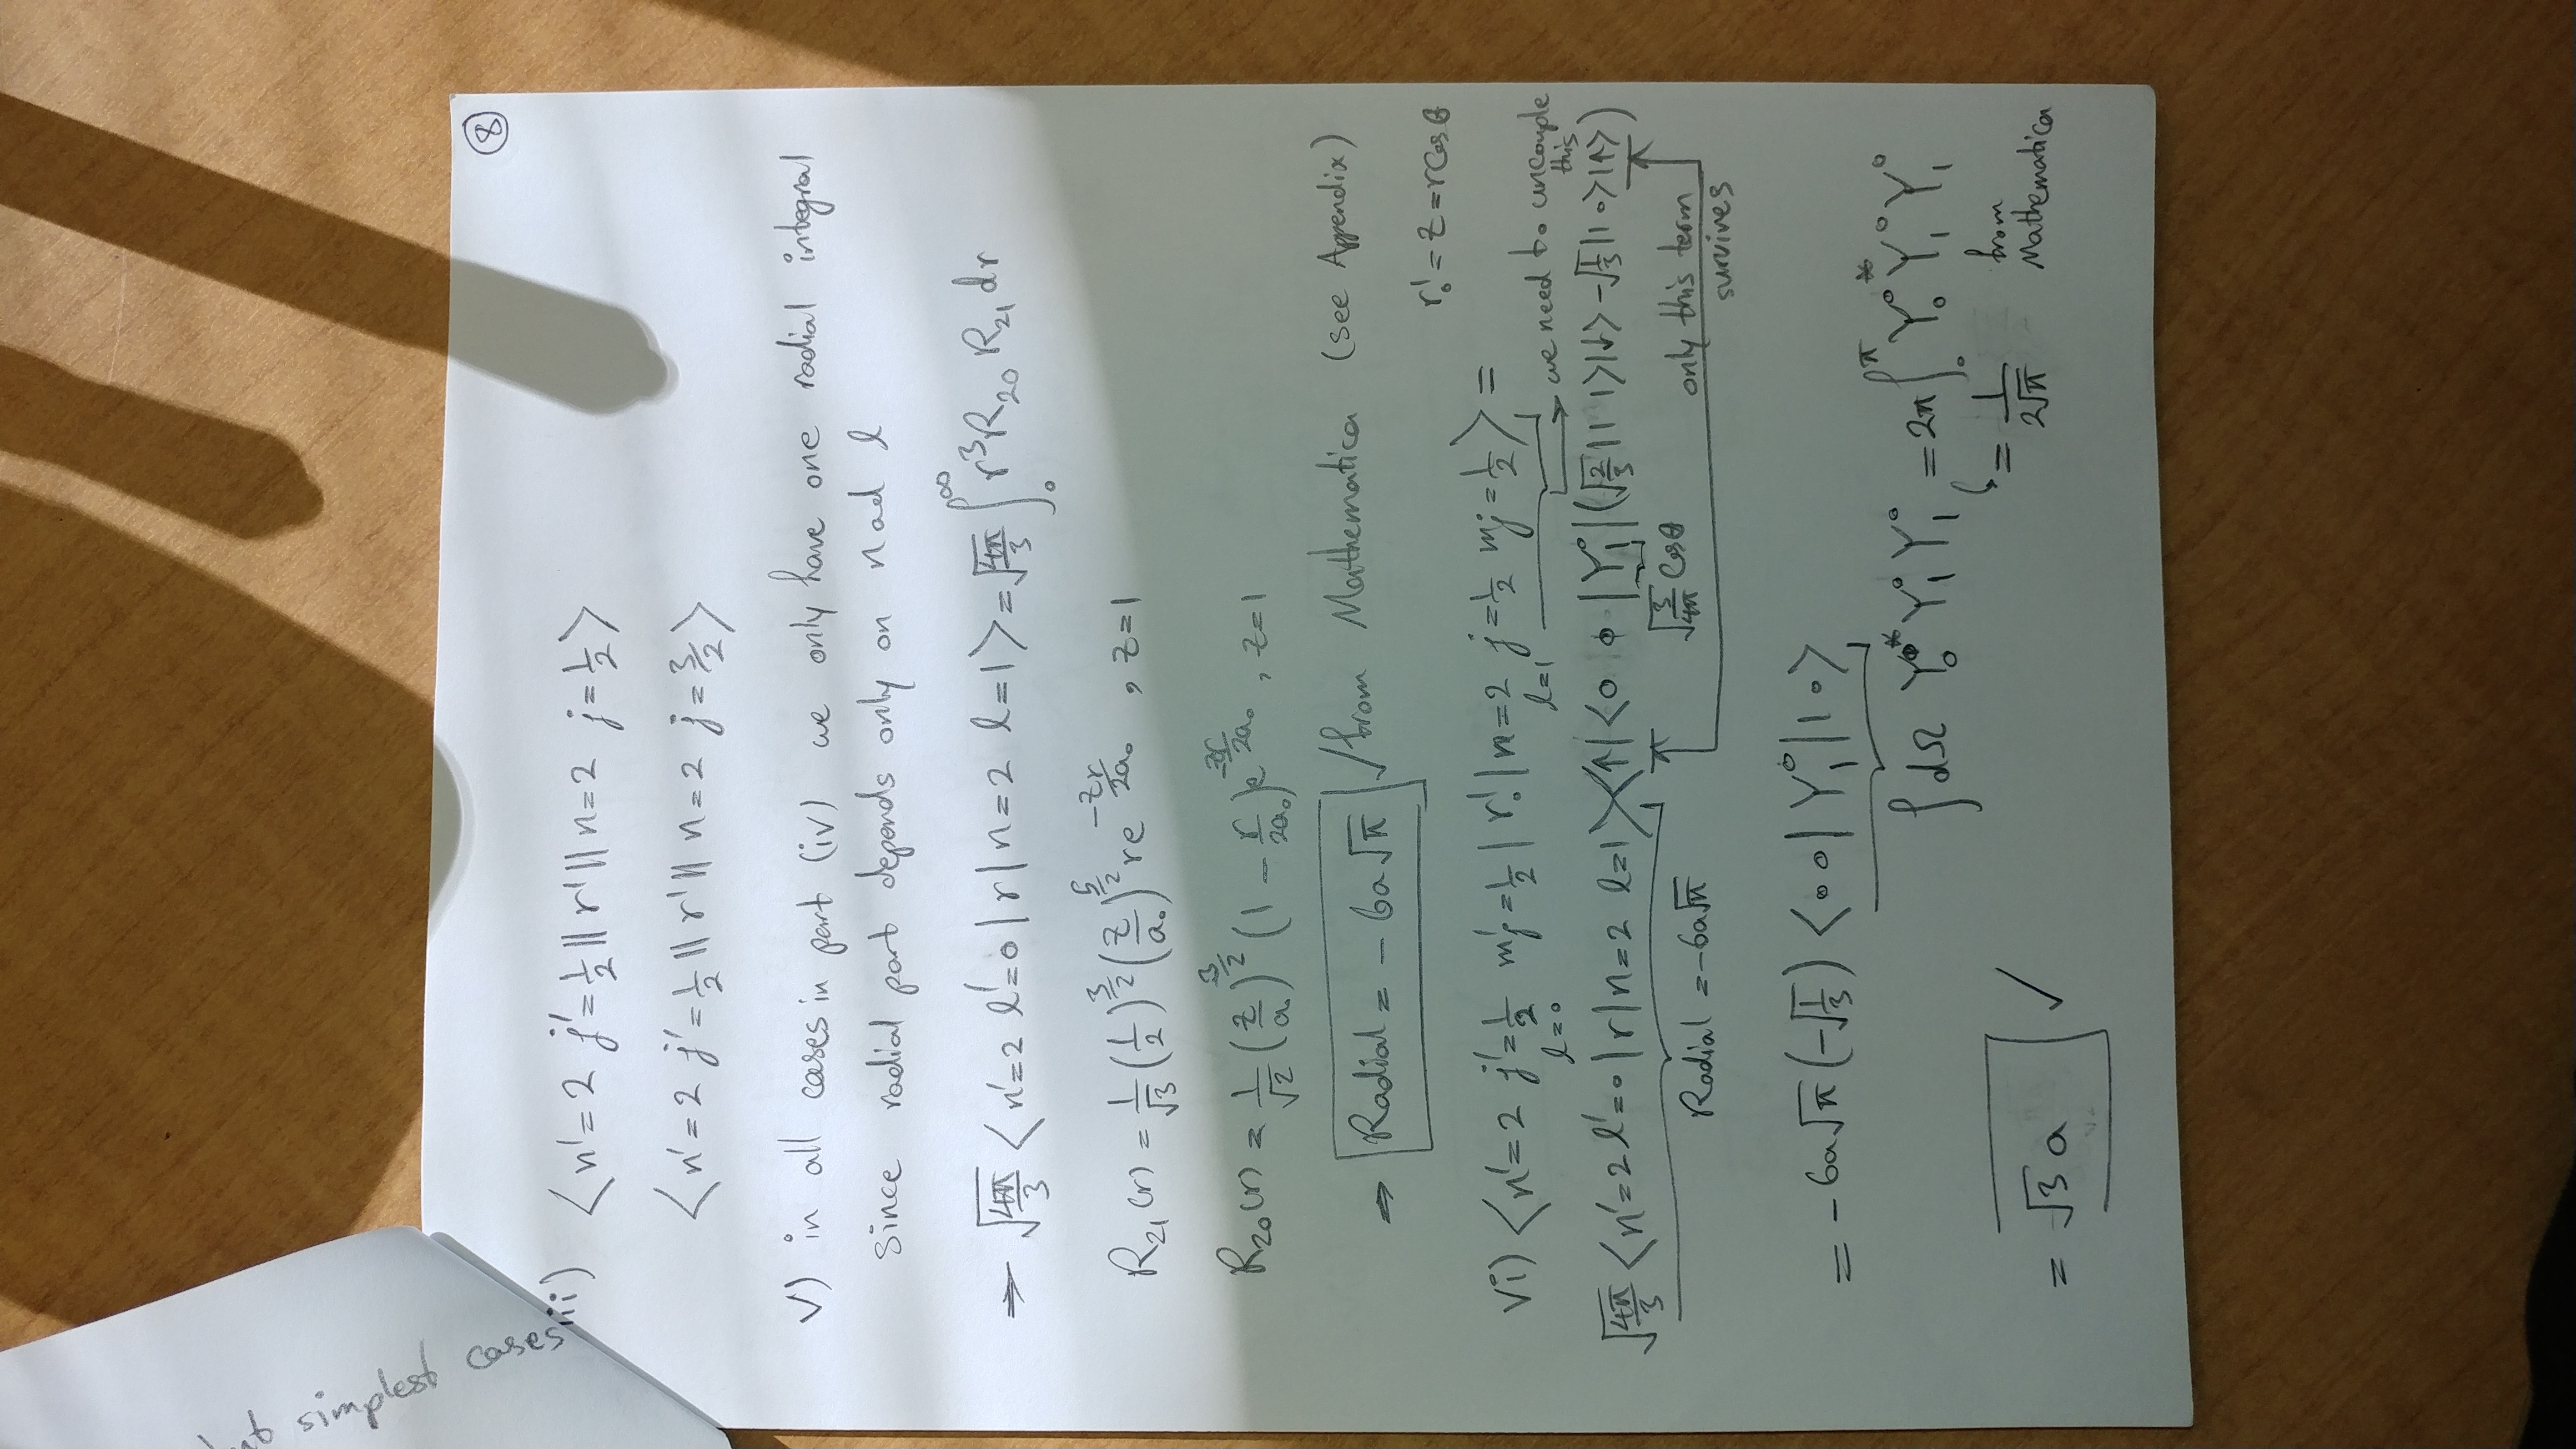 nt simplest cases
⑧
iii) ⟨n'=2 j'=1/2 || r' || n=2 j=1/2⟩
⟨n'=2 j'=1/2 || r' || n=2 j=3/2⟩
V) in all cases in part (iv) we only have one radial integral
since radial part depends only on n ad l
⇒ √(4π/3) ⟨n'=2 l'=0 | r | n=2 l=1⟩ = √(4π/3) ∫₀^∞ r³ R₂₀ R₂₁ dr
R₂₁(r) = 1/√3 (1/2)^(3/2) (z/a₀)^(5/2) r e^(-zr/2a₀) , z=1
R₂₀(r) = 1/√2 (z/a₀)^(3/2) (1 - r/2a₀) e^(-zr/2a₀) , z=1
⇒ Radial = -6a√π ✓ from Mathematica (see Appendix)
r₀' = z = r cos θ
Vi) ⟨n'=2 j'=1/2 mj'=1/2 | r₀' | n=2 j=1/2 mj=1/2⟩ =
l=0 l=1 → we need to uncouple this
√(4π/3) ⟨n'=2 l'=0 | r | n=2 l=1⟩ × ⟨↑| ⟨0 0 | Y₁⁰ | (√(2/3) |1 1⟩|↓⟩ - √(1/3) |1 0⟩|↑⟩)
Radial = -6a√π √(3/4π) cos θ only this term
survives
= -6a√π (-√(1/3)) ⟨0 0 | Y₁⁰ | 1 0⟩
∫dΩ Y₀⁰* Y₁⁰ Y₁⁰ = 2π ∫₀^π Y₀⁰* Y₁⁰ Y₁⁰
= 1/(2√π) from Mathematica
= √3 a ✓